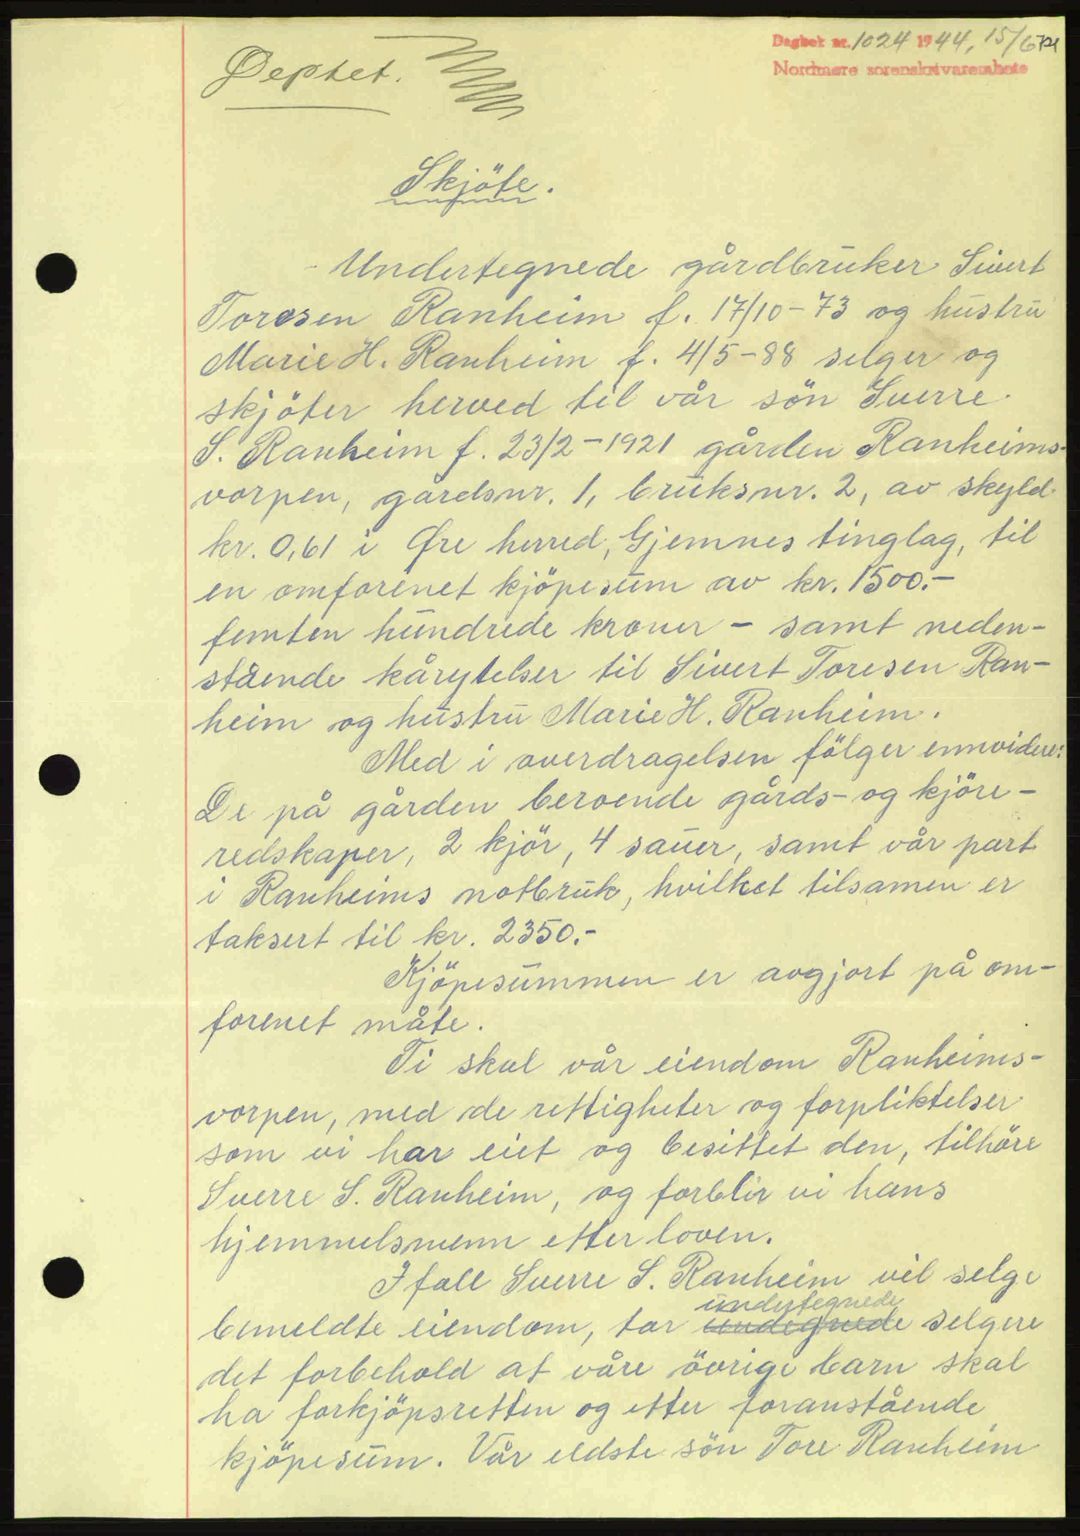 Dagbok nr. 1024 1944, 15/6
Nordmøre sorenskriverembete
Skjöte.
Undertegnede gårdbruker Sivert
Toresen Ranheim f. 17/10-73 og hustru
Marie H. Ranheim f. 4/5-88 selger og
skjöter herved til vår sön Sverre
S. Ranheim f. 23/2-1921 gården Ranheims-
vorpen, gårdsnr. 1, bruksnr. 2, av skyld
kr. 0,61 i Øre herred, Gjemnes tinglag, til
en omforenet kjöpesum av kr. 1500.-
femten hundrede kroner - samt neden-
stående kårytelser til Sivert Toresen Ran-
heim og hustru Marie H. Ranheim.
Med i overdragelsen fölger ennvidere:
De på gården beroende gårds- og kjöre-
redskaper, 2 kjör, 4 sauer, samt vår part
i Ranheims notbruk, hvilket tilsamen er
taksert til kr. 2350.-
Kjöpesummen er avgjort på om-
forenet måte.
Ti skal vår eiendom Ranheims-
vorpen, med de rettigheter og forpliktelser
som vi har eiet og besittet den, tilhöre
Sverre S. Ranheim, og forblir vi hans
hjemmelsmenn etter loven.
Ifall Sverre S. Ranheim vil selge
undertegnede
bemeldte eiendom, tar undegnede selgere
det forbehold at våre övrige barn skal
ha forkjöpsretten og etter foranstående
kjöpesum. Vår eldste sön Tore Ranheim